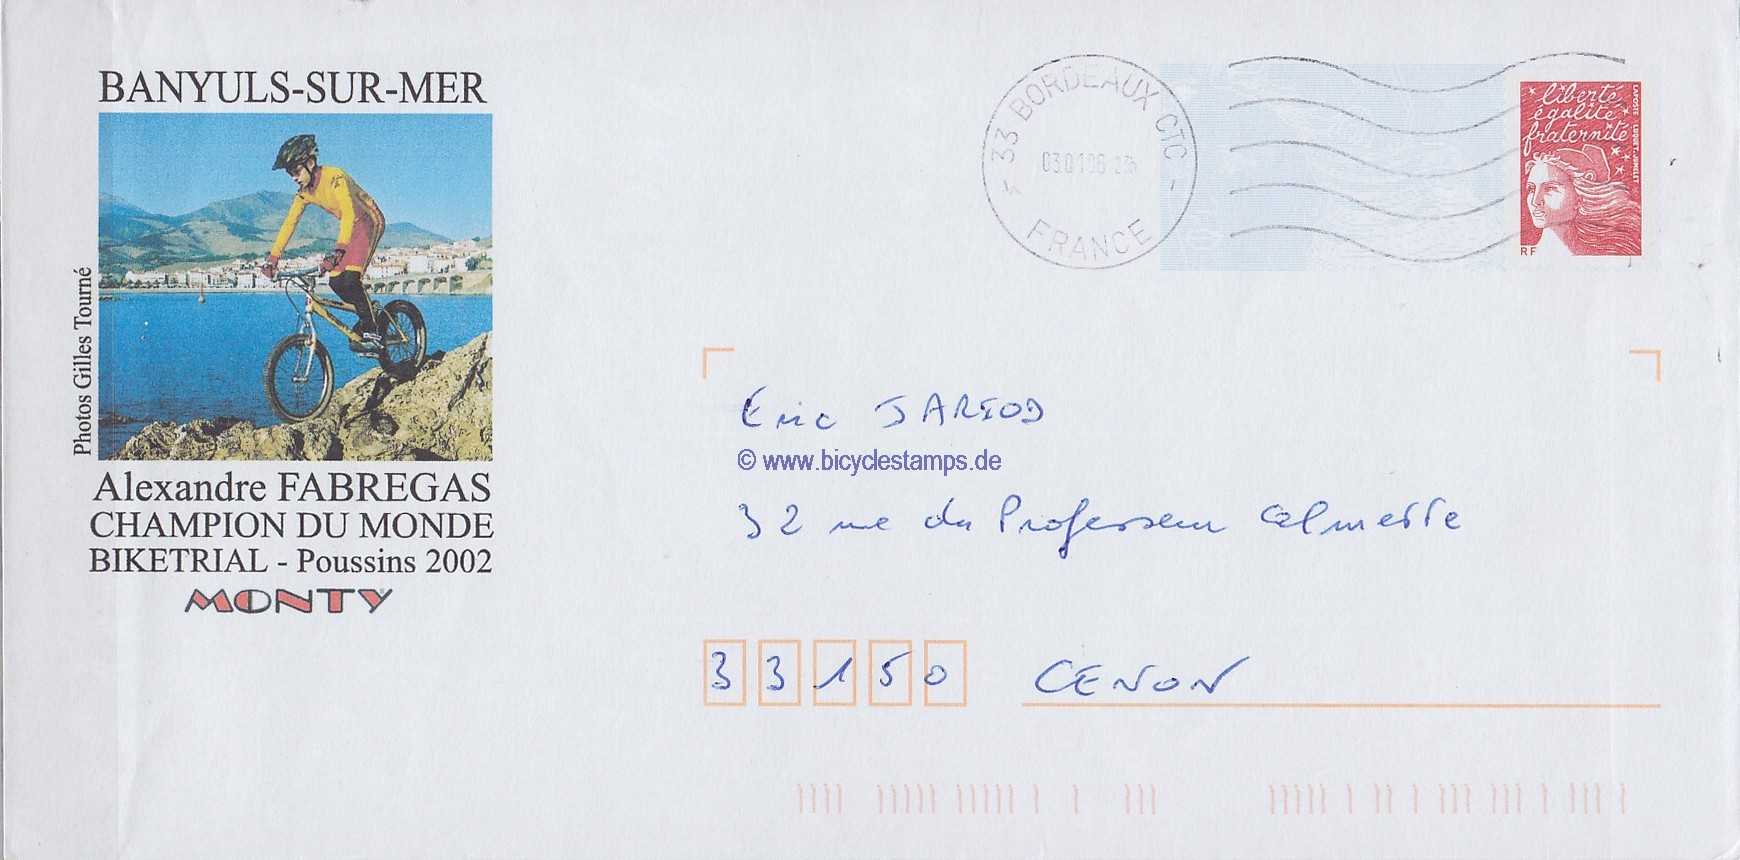 BANYULS-SUR-MER
Photos Gilles Tourné
Alexandre FABREGAS
CHAMPION DU MONDE
BIKETRIAL - Poussins 2002
MONTY
33 BORDEAUX CTC
FRANCE
liberté
égalité
fraternité
LA POSTE LUQUET.JUMELET
RF
Eric JARIOD
© www.bicyclestamps.de
32 rue du Professeur Calmette
33150 CENON